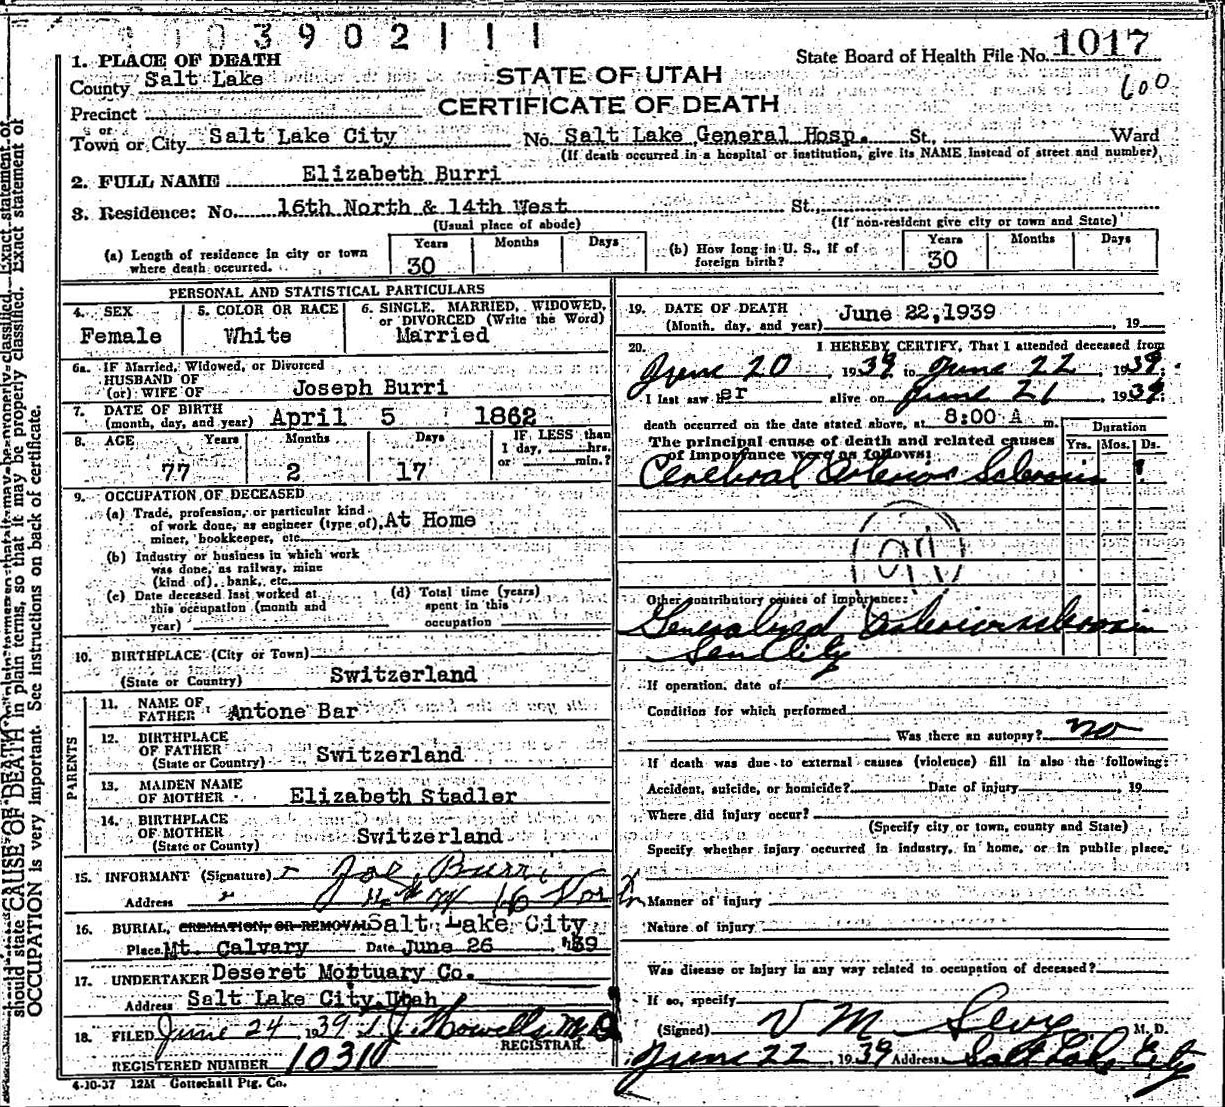 003902111
1. PLACE OF DEATH
State Board of Health File No. 1017
County Salt Lake
STATE OF UTAH
600
CERTIFICATE OF DEATH
Precinct
or
Town or City Salt Lake City No. Salt Lake General Hosp. St., Ward
(If death occurred in a hospital or institution, give its NAME instead of street and number)
2. FULL NAME Elizabeth Burri
3. Residence: No. 16th North & 14th West St.
(Usual place of abode) (If non-resident give city or town and State)
(a) Length of residence in city or town where death occurred. Years 30 Months Days
(b) How long in U. S., if of foreign birth? Years 30 Months Days
PERSONAL AND STATISTICAL PARTICULARS
4. SEX
Female
5. COLOR OR RACE
White
6. SINGLE, MARRIED, WIDOWED,
or DIVORCED (Write the Word)
Married
6a. IF Married, Widowed, or Divorced
HUSBAND OF
(or) WIFE OF Joseph Burri
7. DATE OF BIRTH
(month, day, and year) April 5 1862
8. AGE Years Months Days
77 2 17
IF LESS than
1 day, hrs.
or min.?
9. OCCUPATION OF DECEASED
(a) Trade, profession, or particular kind
of work done, as engineer (type of), At Home
miner, bookkeeper, etc.
(b) Industry or business in which work
was done, as railway, mine
(kind of), bank, etc.
(c) Date deceased last worked at
this occupation (month and
year)
(d) Total time (years)
spent in this
occupation
10. BIRTHPLACE (City or Town)
(State or Country) Switzerland
PARENTS
11. NAME OF
FATHER Antone Bar
12. BIRTHPLACE
OF FATHER
(State or Country) Switzerland
13. MAIDEN NAME
OF MOTHER Elizabeth Stadler
14. BIRTHPLACE
OF MOTHER
(State or County) Switzerland
15. INFORMANT (Signature) Joe Burri
Address 16 Nor
16. BURIAL, CREMATION, OR REMOVAL Salt Lake City
Place Mt. Calvary Date June 26 1939
17. UNDERTAKER Deseret Mortuary Co.
Address Salt Lake City, Utah
18. FILED June 24 1939 T J Howells M D
REGISTRAR.
REGISTERED NUMBER 1031
4-10-37 12M Gottschall Ptg. Co.
19. DATE OF DEATH
(Month, day, and year) June 22, 1939 , 19
20. I HEREBY CERTIFY, That I attended deceased from
June 20 1939 to June 22 1939.
I last saw her alive on June 21 1939.
death occurred on the date stated above, at 8:00 A m.
The principal cause of death and related causes
of importance were as follows:
Duration
Yrs. Mos. Ds.
Cerebral Arterio Sclerosis ?
97
Other contributory causes of importance:
Generalized Arteriosclerosis
Senility
If operation, date of
Condition for which performed
Was there an autopsy? no
If death was due to external causes (violence) fill in also the following:
Accident, suicide, or homicide? Date of injury , 19
Where did injury occur?
(Specify city or town, county and State)
Specify whether injury occurred in industry, in home, or in public place,
Manner of injury
Nature of injury
Was disease or injury in any way related to occupation of deceased?
If so, specify
(Signed) V M Sevy M. D.
June 22, 1939 Address Salt Lake City
should state CAUSE OF DEATH in plain terms, so that it may be properly classified. Exact statement of
OCCUPATION is very important. See instructions on back of certificate.